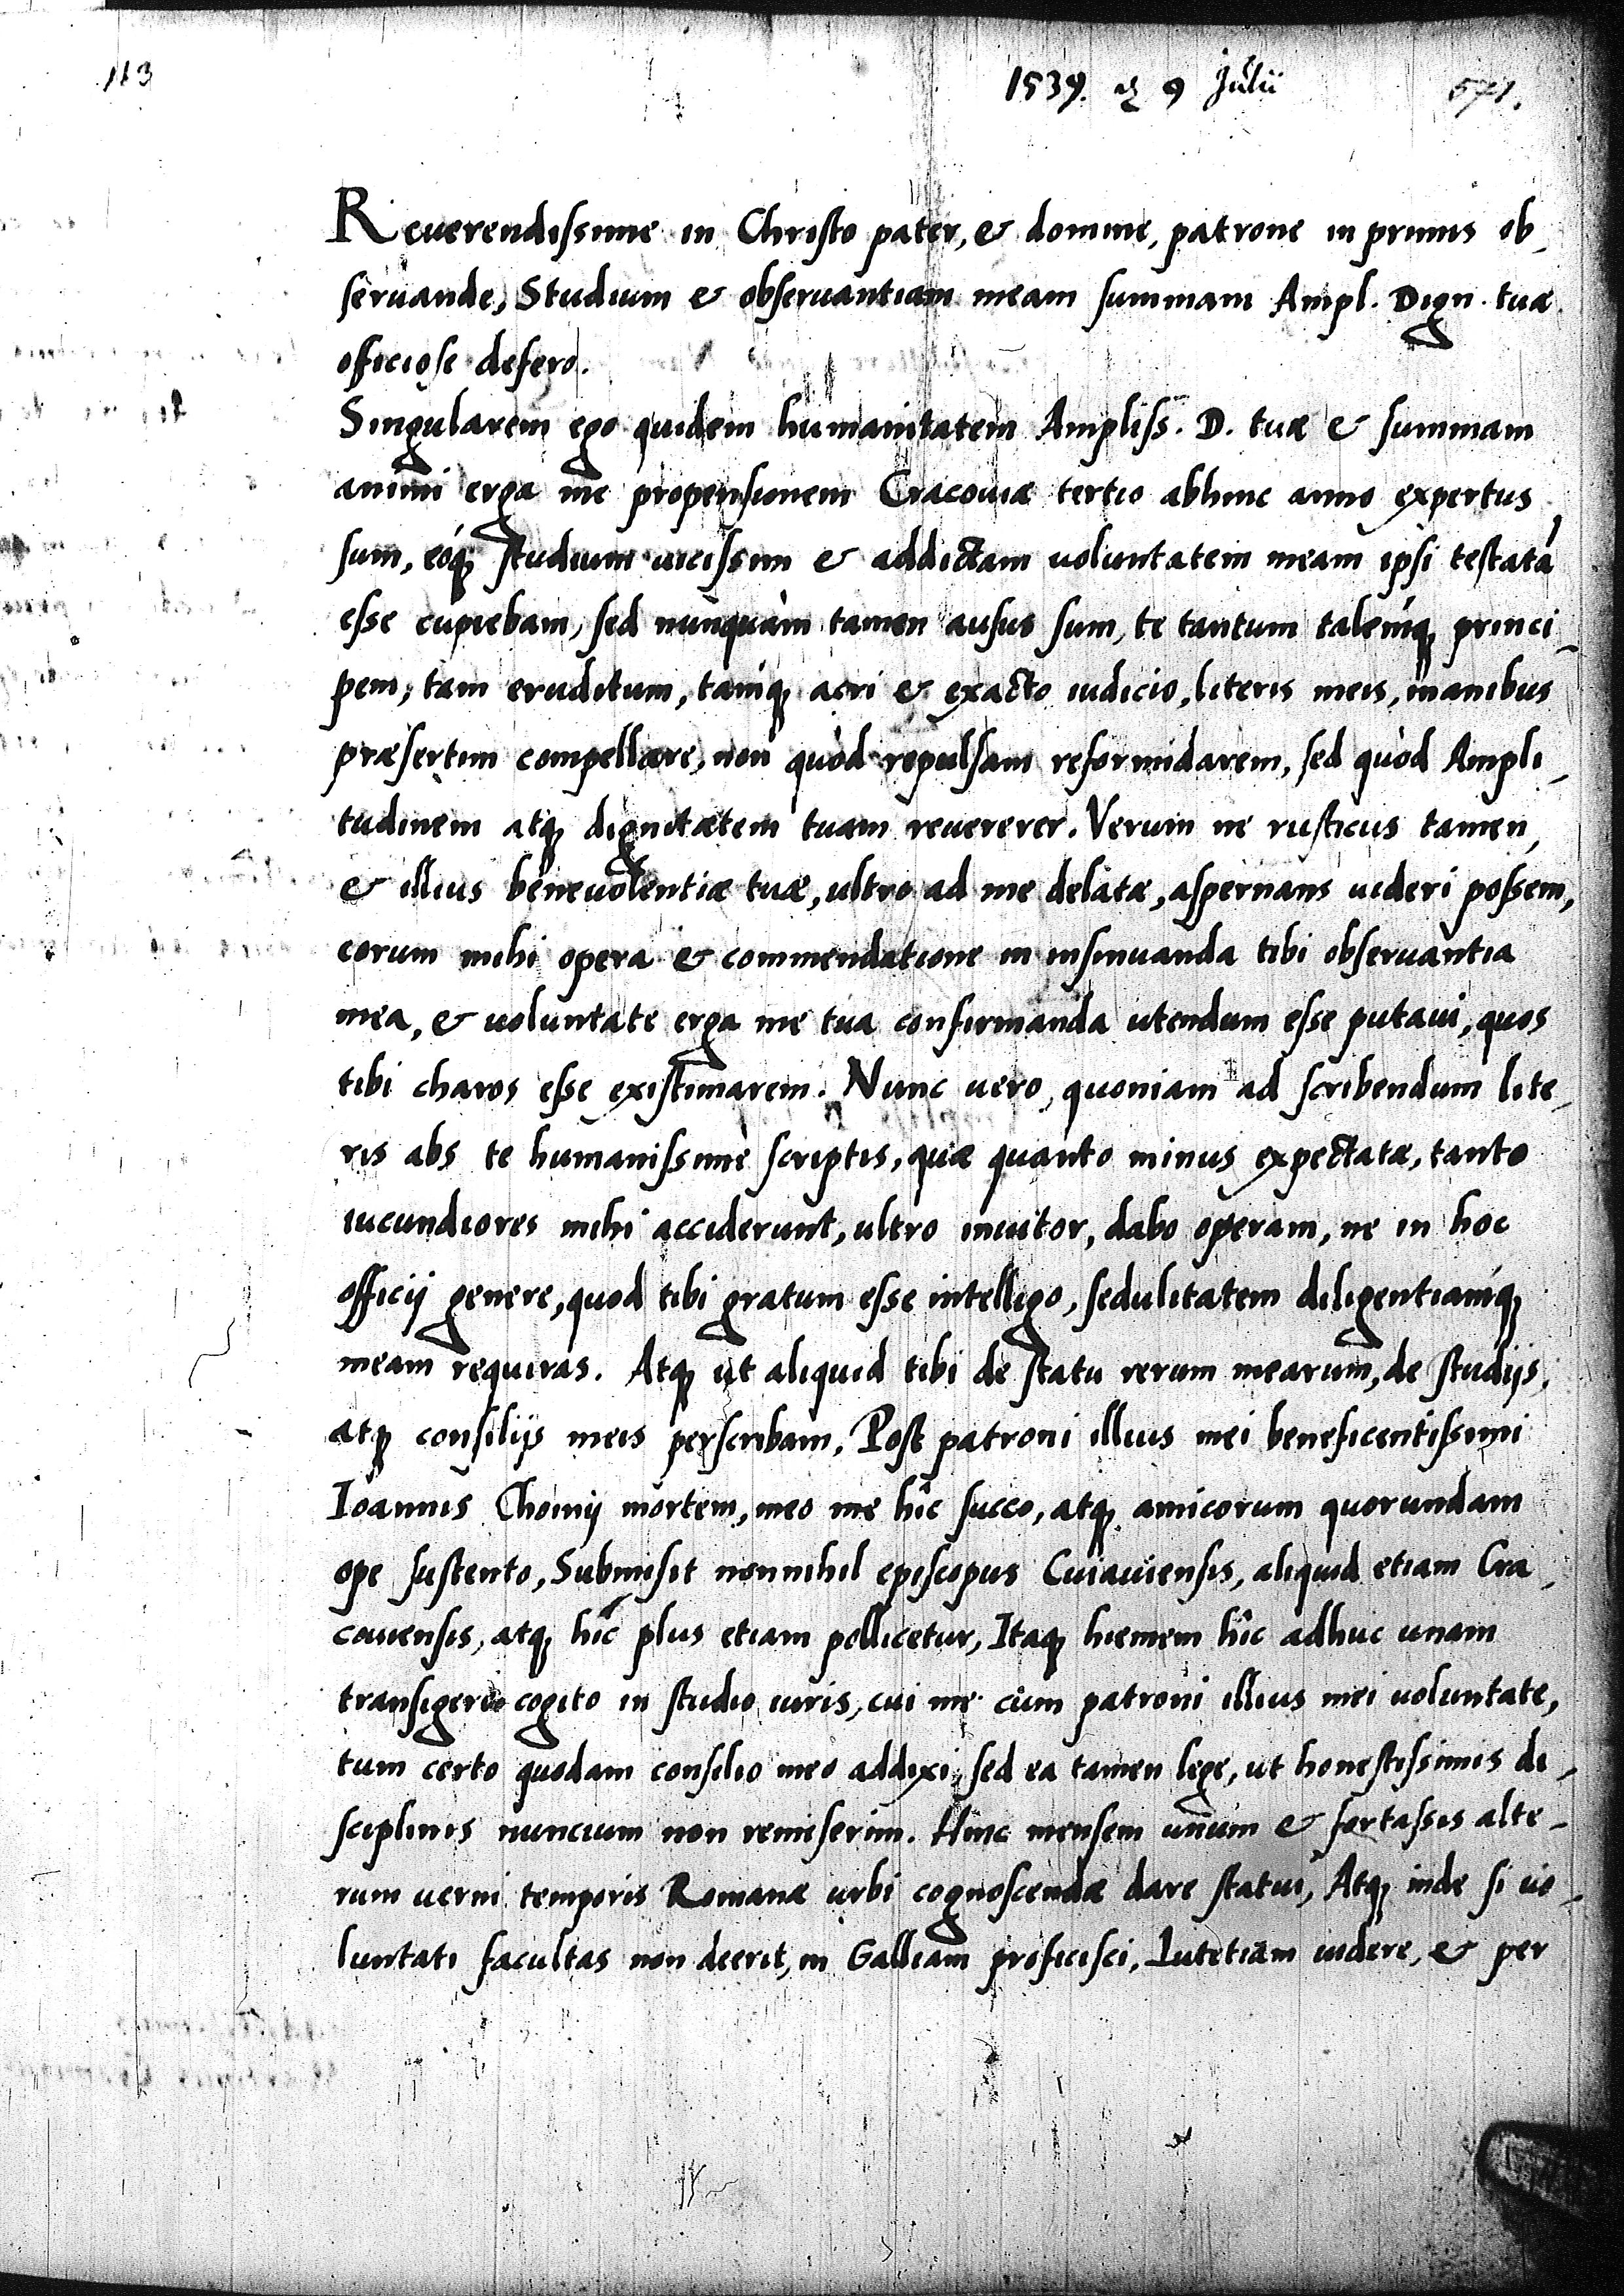 113
1539. 9 Julii
571.
Reuerendissime in Christo pater, & domine, patrone in primis ob-
seruande, Studium & obseruantiam meam summam Ampl. Dign. tuæ
officiose defero.
Singularem ego quidem humanitatem Ampliss. D. tuæ & summam
animi erga me propensionem Cracouiæ tertio abhinc anno expertus
sum, eóq; studium uicissim & addictam voluntatem meam ipsi testatã
esse cupiebam, sed nunquàm tamen ausus sum, te tantum talemq́; princi-
pem, tam eruditum, tamq́; acri & exacto iudicio, literis meis, inanibus
præsertim compellare, non quòd repulsam reformidarem, sed quòd Ampli-
tudinem atq; dignitatem tuam reuererer. Verum ne rusticus tamen,
& illius beneuolentiæ tuæ, ultro ad me delatæ, aspernans uideri possem,
eorum mihi opera & commendatione in insinuanda tibi obseruantia
mea, & uoluntate erga me tua confirmanda utendum esse putaui, quos
tibi charos esse existimarem. Nunc uero, quoniam ad scribendum lite-
ris abs te humanissime scriptis, quæ quanto minus expectatæ, tanto
iucundiores mihi acciderunt, ultro inuitor, dabo operam, ne in hoc
officij genere, quod tibi gratum esse intelligo, sedulitatem diligentiamq́;
meam requiras. Atq; ut aliquid tibi de statu rerum mearum, de studijs,
atq; consilijs meis perscribam, Post patroni illius mei beneficentissimi
Ioannis Choinij mortem, meo me hîc succo, atq; amicorum quorundam
ope sustento, Submisit nonnihil episcopus Cuiauiensis, aliquid etiam Cra-
couiensis, atq; hîc plus etiam pollicetur, Itaq; hiemem hîc adhuc unam
transigere cogito in studio iuris, cui me cùm patroni illius mei uoluntate,
tum certo quodam consilio meo addixi, sed ea tamen lege, ut honestissimis di-
sciplinis nuncium non remiserim. Hinc mensem unum & fortassis alte-
rum uerni temporis Romanæ urbi cognoscendæ dare statui, Atq; inde si uo-
luntati facultas non deerit, in Galliam proficisci, Lutetiam uidere, & per